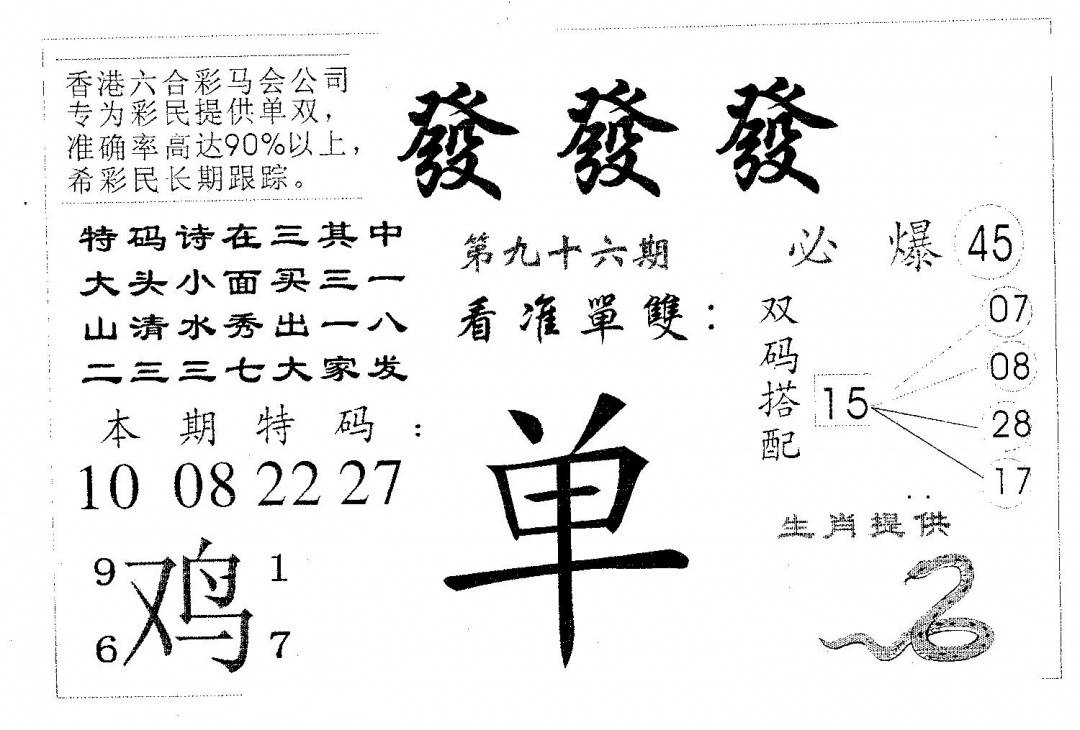 香港六合彩马会公司
专为彩民提供单双，
准确率高达90%以上，
希彩民长期跟踪。
發 發 發
特码诗在三其中
大头小面买三一
山清水秀出一八
二三三七大家发
第九十六期
看准單雙：
单
必爆 45
双码搭配
15
07
08
28
17
本期特码：
10 08 22 27
9 1
鸡
6 7
生肖提供